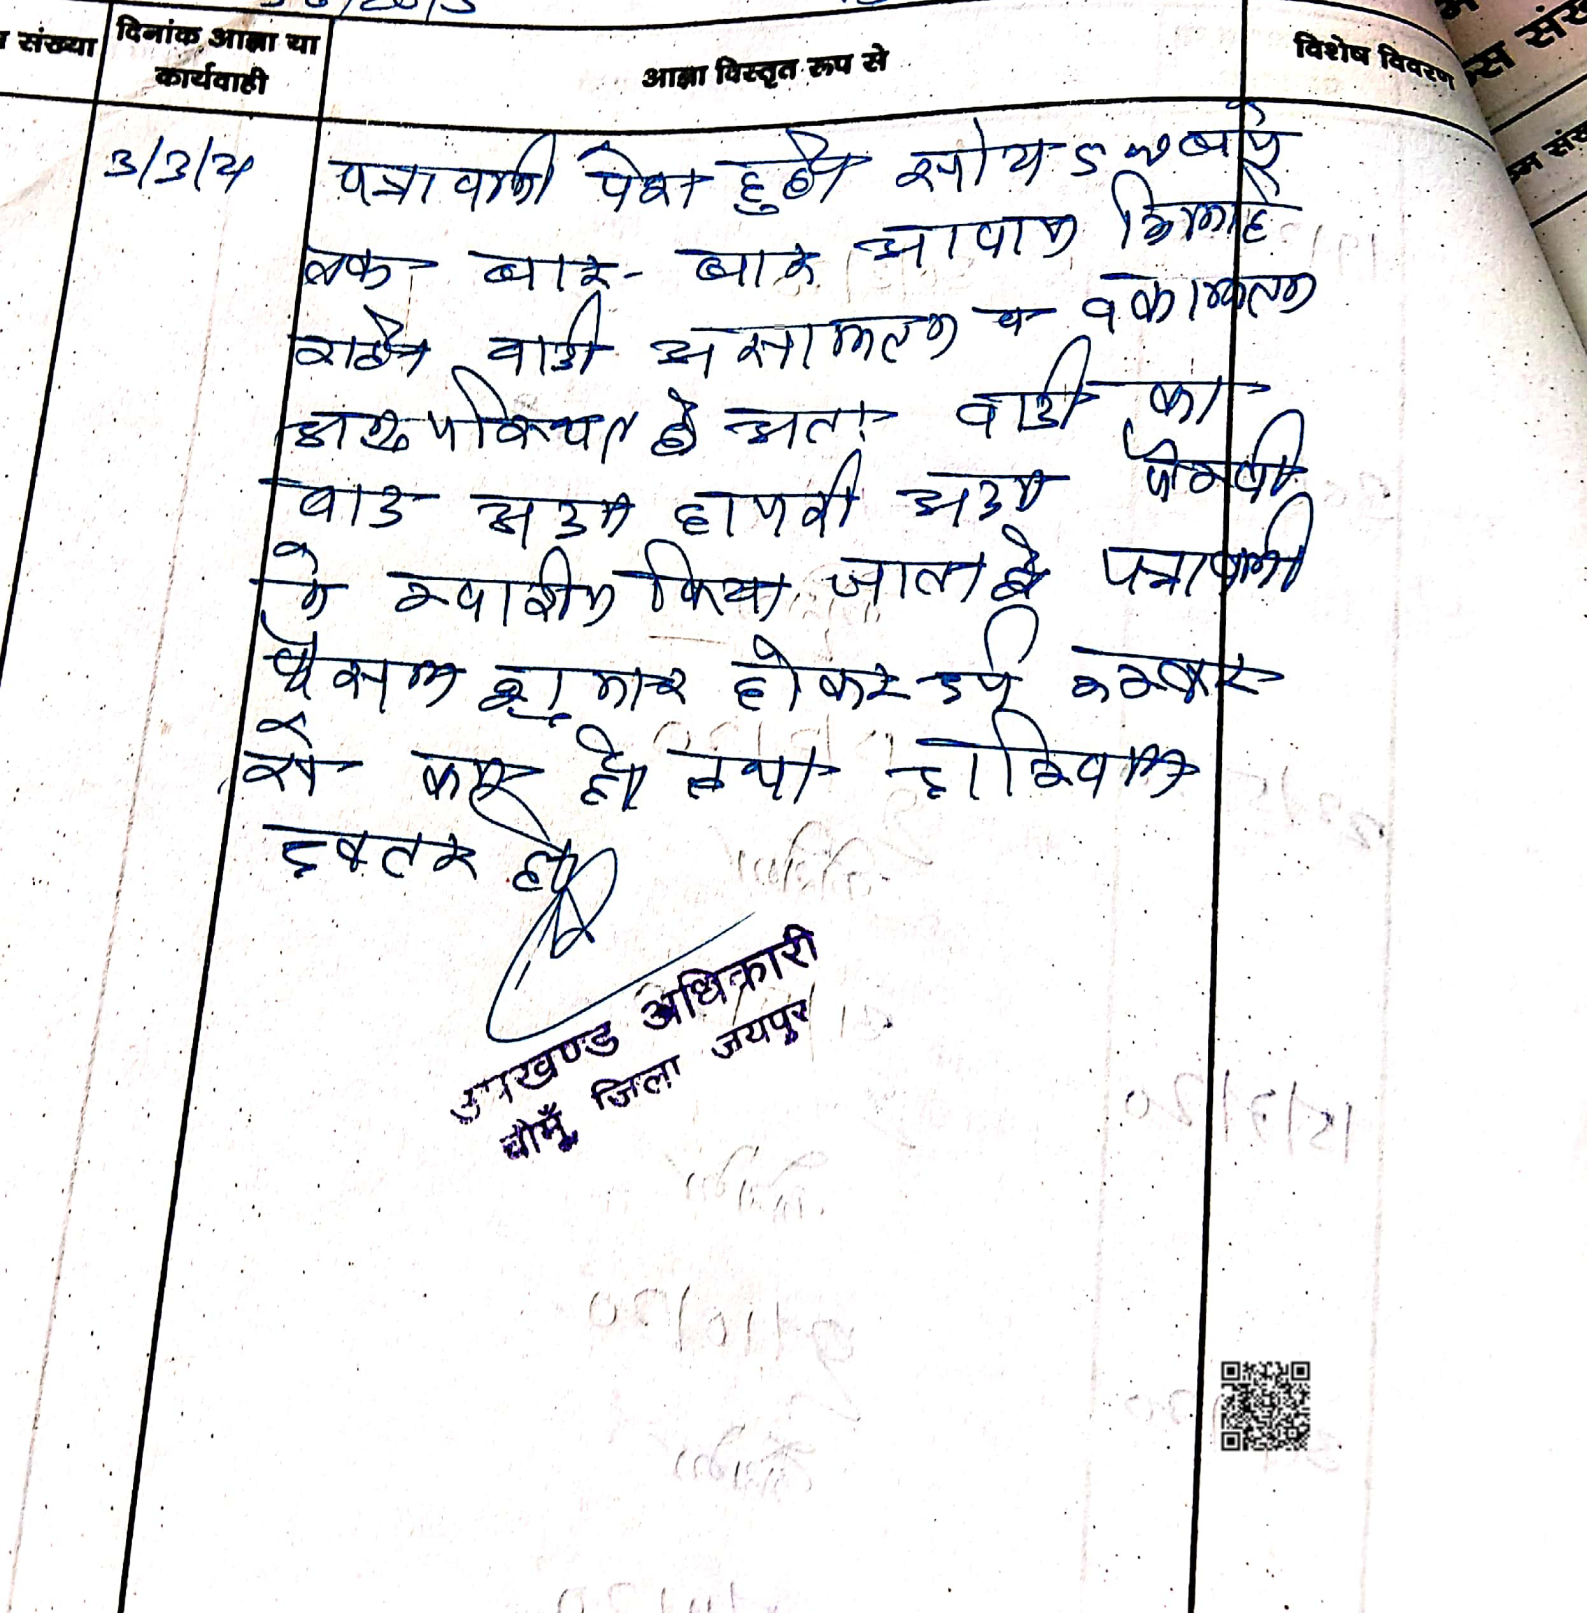 संख्या दिनांक आज्ञा या कार्यवाही आज्ञा विस्तृत रूप से विशेष विवरण
3/3/21 पत्रावली पेश हुई सांय 5 बजे
तक बार-बार आवाज दिलाई
गई वादी असालतन व वकालतन
अनुपस्थित है अतः वादी का
वाद अदम हाजरी अदम पैरवी
मे खारीज किया जाता है पत्रावली
फैसल शुमार होकर दर्ज रजिस्टर
से कम हो तथा दाखिल
दफ्तर हो
उपखण्ड अधिकारी
चौमूँ जिला जयपुर